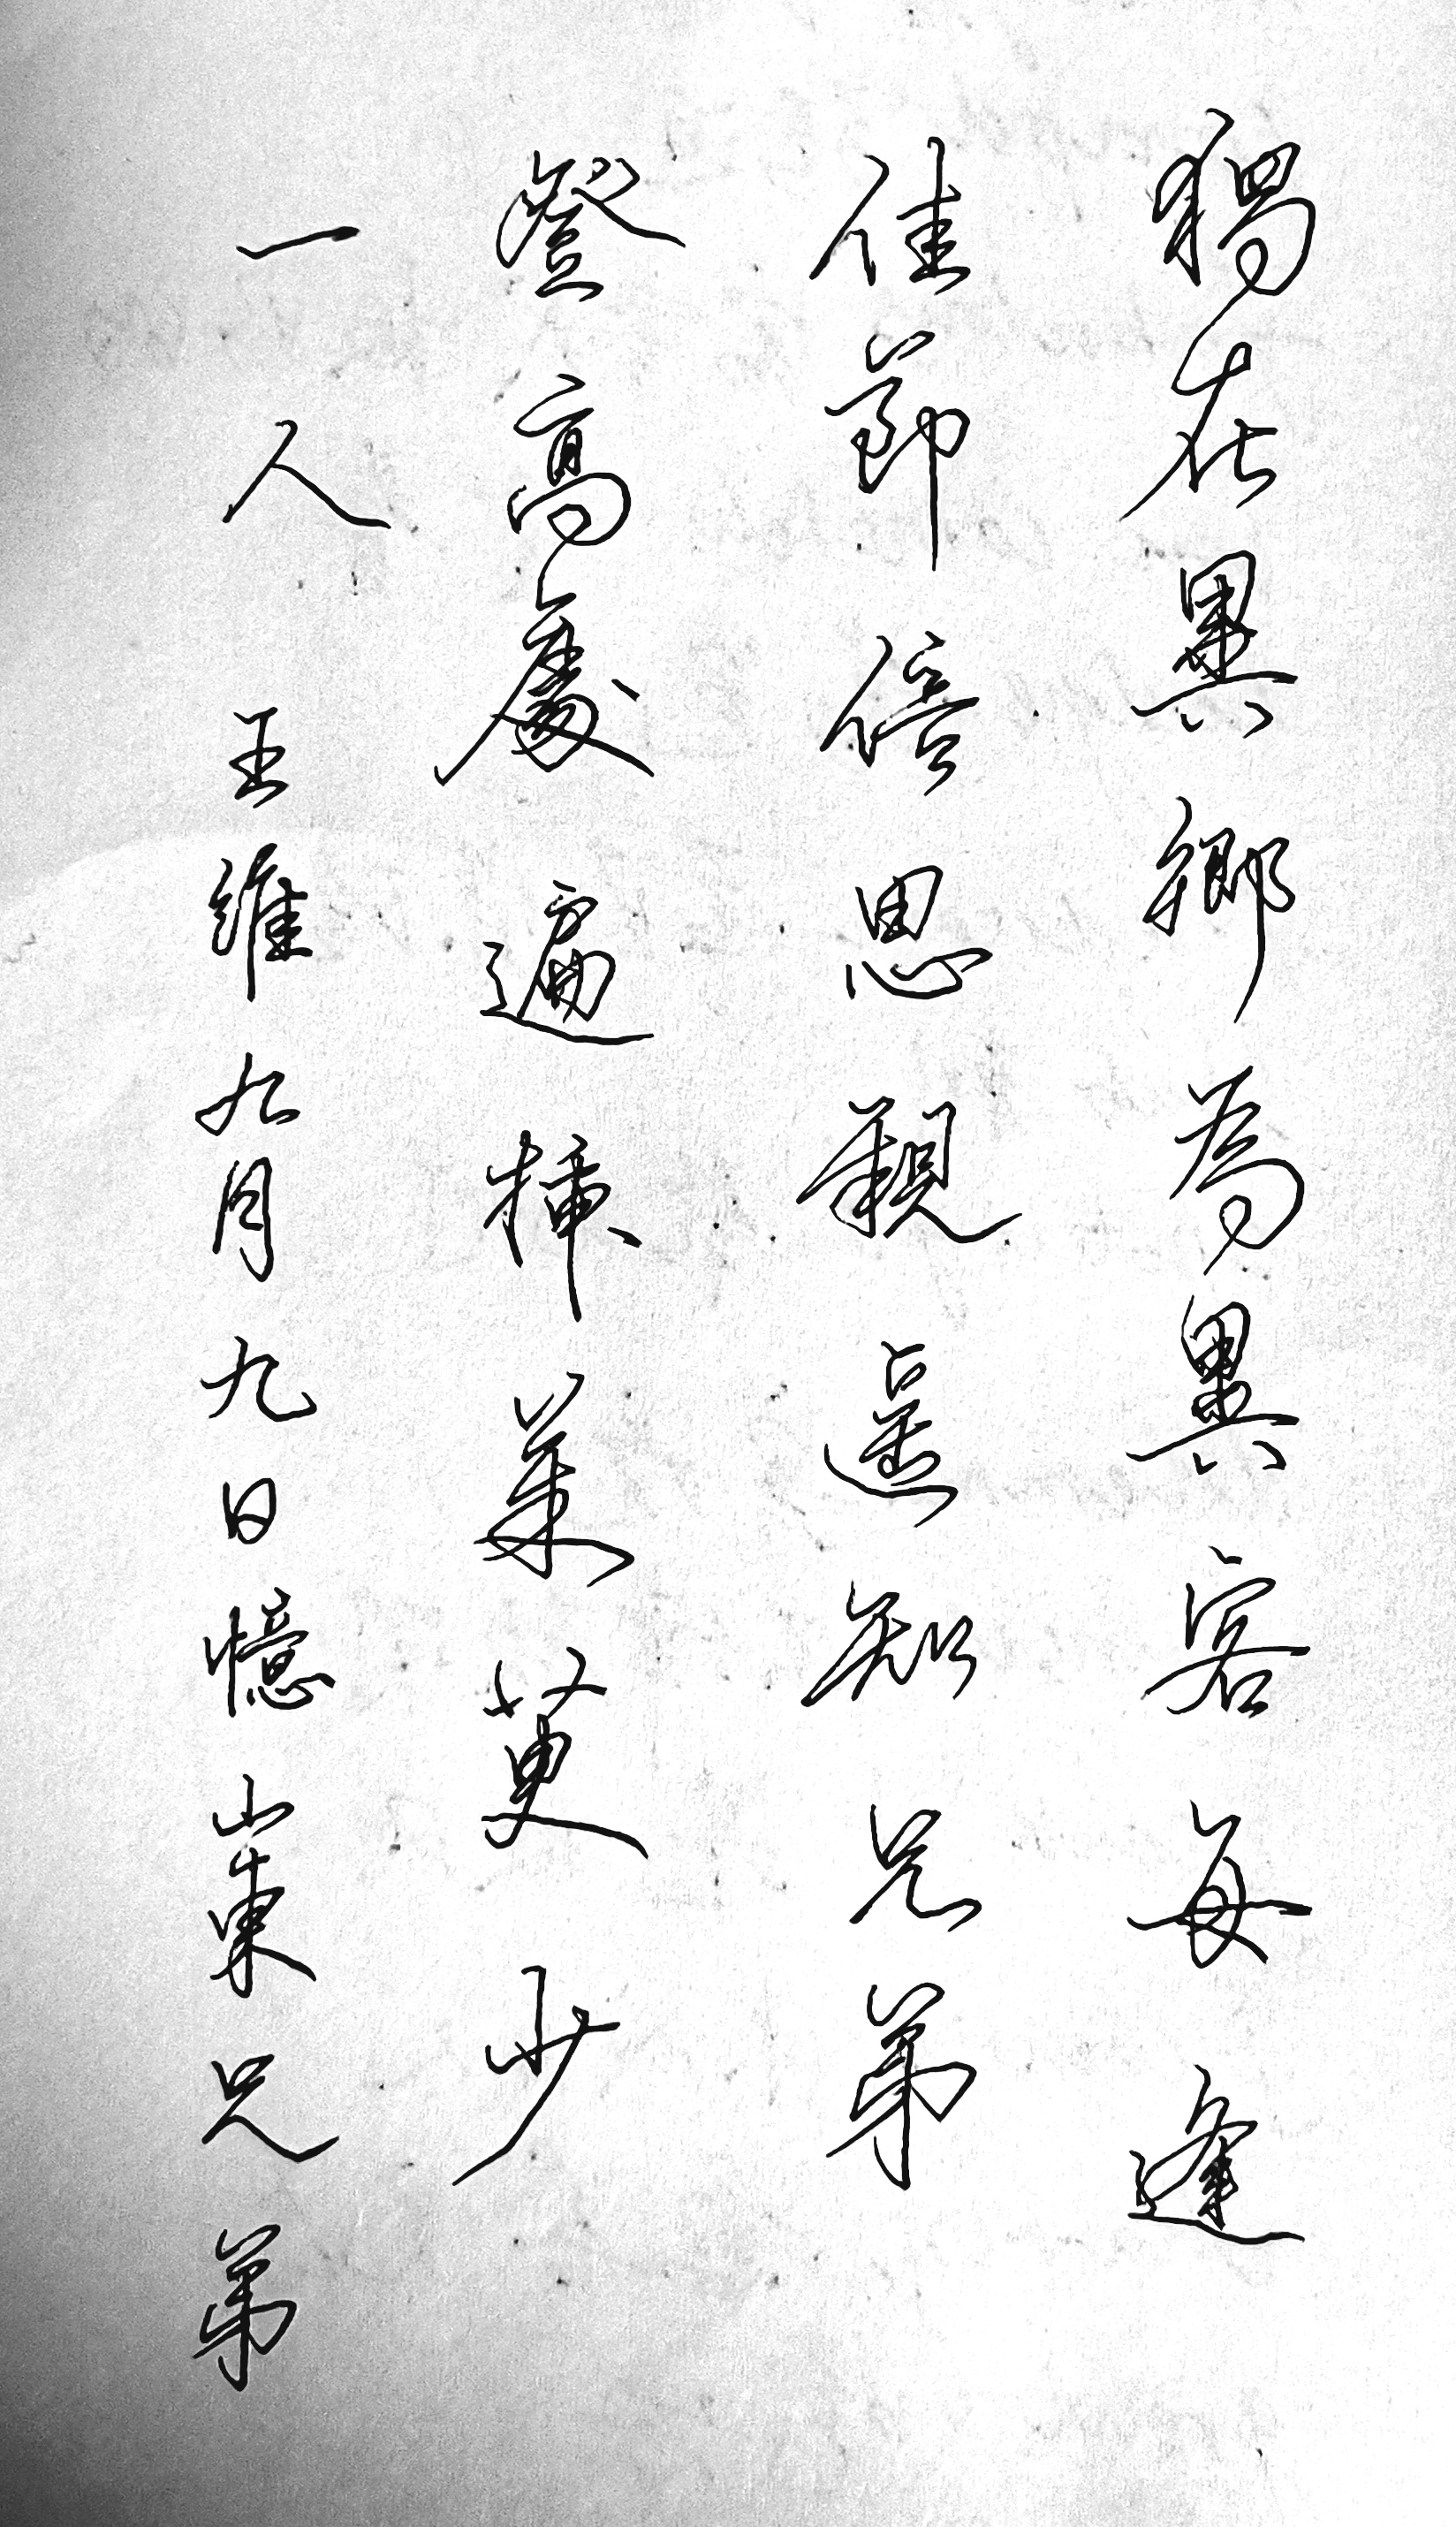 獨在異鄉為異客每逢
佳節倍思親遥知兄弟
登高處遍插茱萸少
一人 王維九月九日憶山東兄弟